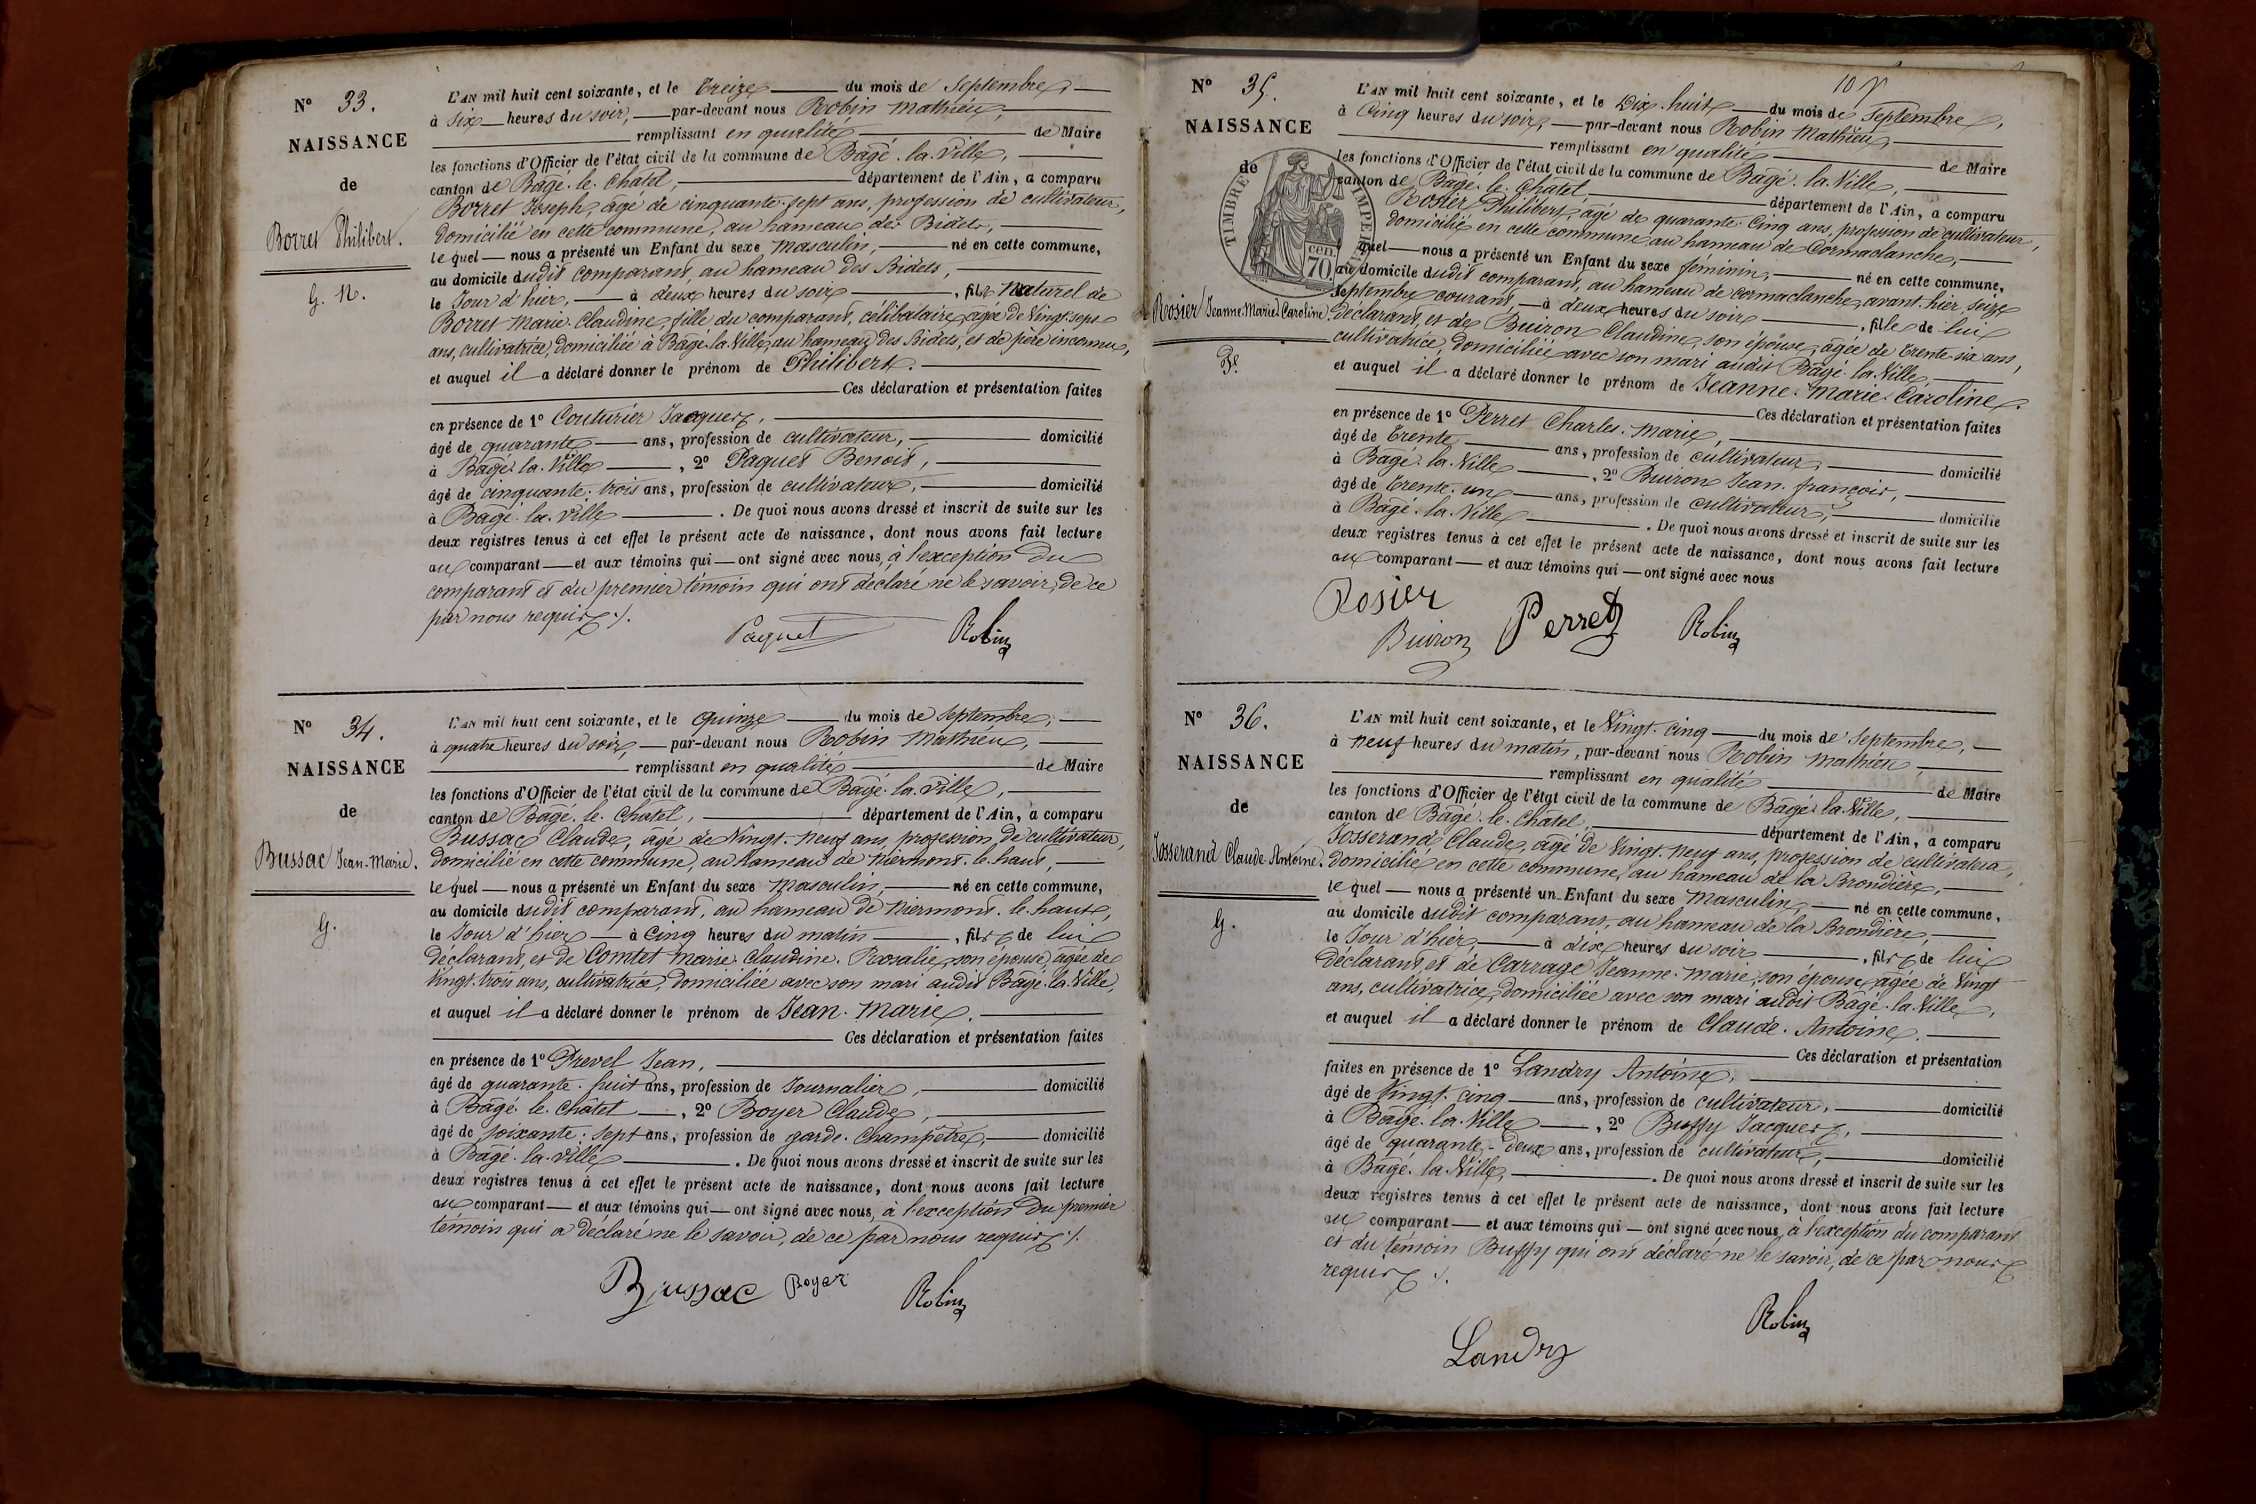 N° 33.
NAISSANCE
de
Borret Philibert.
G. N.
L'AN mil huit cent soixante, et le treize du mois de Septembre,
à six heures du soir, par-devant nous Robin Mathieu,
remplissant en qualité de Maire
les fonctions d'Officier de l'état civil de la commune de Bagé-la-Ville,
canton de Bagé-le-Chatel, département de l'Ain, a comparu
Borret Joseph, âgé de cinquante-sept ans, profession de cultivateur,
domicilié en cette commune, au hameau des Bidets,
lequel nous a présenté un Enfant du sexe masculin, né en cette commune,
au domicile dudit comparant, au hameau des Bidets,
le Jour d'hier, à deux heures du soir, fils naturel de
Borret Marie-Claudine, fille du comparant, célibataire, âgée de vingt-sept
ans, cultivatrice, domiciliée à Bagé-la-Ville, au hameau des Bidets, et de père inconnu,
et auquel il a déclaré donner le prénom de Philibert.
Ces déclaration et présentation faites
en présence de 1° Couturier Jacques,
âgé de quarante ans, profession de cultivateur, domicilié
à Bagé-la-Ville, 2° Paquet Benoit,
âgé de cinquante-trois ans, profession de cultivateur, domicilié
à Bagé-la-Ville. De quoi nous avons dressé et inscrit de suite sur les
deux registres tenus à cet effet le présent acte de naissance, dont nous avons fait lecture
au comparant et aux témoins qui ont signé avec nous, à l'exception du
comparant et du premier témoin qui ont déclaré ne le savoir, de ce
par nous requis./.
Paquet Robin
N° 34.
NAISSANCE
de
Bussac Jean-Marie.
G.
L'AN mil huit cent soixante, et le quinze du mois de Septembre,
à quatre heures du soir, par-devant nous Robin Mathieu,
remplissant en qualité de Maire
les fonctions d'Officier de l'état civil de la commune de Bagé-la-Ville,
canton de Bagé-le-Chatel, département de l'Ain, a comparu
Bussac Claude, âgé de Vingt-neuf ans, profession de cultivateur,
domicilié en cette commune, au hameau de Niermont-le-haut,
lequel nous a présenté un Enfant du sexe masculin, né en cette commune,
au domicile dudit comparant, au hameau de Niermont-le-haut,
le Jour d'hier à Cinq heures du matin, fils de lui
déclarant, et de Comtet Marie-Claudine-Rosalie, son épouse, âgée de
vingt-trois ans, cultivatrice, domiciliée avec son mari audit Bagé-la-Ville,
et auquel il a déclaré donner le prénom de Jean-Marie.
Ces déclaration et présentation faites
en présence de 1° Prevel Jean,
âgé de quarante-huit ans, profession de Journalier, domicilié
à Bagé-le-Châtel, 2° Boyer Claude,
âgé de soixante-sept ans, profession de garde-champêtre, domicilié
à Bagé-la-Ville. De quoi nous avons dressé et inscrit de suite sur les
deux registres tenus à cet effet le présent acte de naissance, dont nous avons fait lecture
au comparant et aux témoins qui ont signé avec nous, à l'exception du premier
témoin qui a déclaré ne le savoir, de ce par nous requis./.
Bussac Boyer Robin
10
N° 35.
NAISSANCE
de
TIMBRE IMPERIAL
cen. 70
Rosier Jeanne-Marie-Caroline.
Fe.
L'AN mil huit cent soixante, et le Dix-huit du mois de Septembre,
à Cinq heures du soir, par-devant nous Robin Mathieu,
remplissant en qualité de Maire
les fonctions d'Officier de l'état civil de la commune de Bagé-la-Ville,
canton de Bagé-le-Châtel, département de l'Ain, a comparu
Rosier Philibert, âgé de quarante-Cinq ans, profession de cultivateur,
domicilié en cette commune au hameau de Cormaclanche,
quel nous a présenté un Enfant du sexe féminin, né en cette commune,
au domicile dudit comparant, au hameau de Cormaclanche, avant-hier, seize
Septembre courant, à deux heures du soir, fille de lui
déclarant, et de Buiron Claudine, son épouse, âgée de trente-six ans,
cultivatrice, domiciliée avec son mari audit Bagé-la-Ville,
et auquel il a déclaré donner le prénom de Jeanne-Marie-Caroline.
Ces déclaration et présentation faites
en présence de 1° Perret Charles-Marie,
âgé de trente ans, profession de cultivateur, domicilié
à Bagé-la-Ville, 2° Buiron Jean-françois,
âgé de trente-un ans, profession de cultivateur, domicilié
à Bagé-la-Ville. De quoi nous avons dressé et inscrit de suite sur les
deux registres tenus à cet effet le présent acte de naissance, dont nous avons fait lecture
au comparant et aux témoins qui ont signé avec nous
Rosier
Buiron Perret Robin
N° 36.
NAISSANCE
de
Josserand Claude-Antoine.
G.
L'AN mil huit cent soixante, et le Vingt-cinq du mois de Septembre,
à neuf heures du matin, par-devant nous Robin Mathieu,
remplissant en qualité de Maire
les fonctions d'Officier de l'état civil de la commune de Bagé-la-Ville,
canton de Bagé-le-Chatel, département de l'Ain, a comparu
Josserand Claude, âgé de Vingt-neuf ans, profession de cultivateur,
domicilié en cette commune, au hameau de la Brondière,
lequel nous a présenté un Enfant du sexe masculin, né en cette commune,
au domicile dudit comparant, au hameau de la Brondière,
le Jour d'hier, à dix heures du soir, fils de lui
déclarant, et de Carrage Jeanne-Marie, son épouse, âgée de Vingt
ans, cultivatrice, domiciliée avec son mari audit Bagé-la-Ville,
et auquel il a déclaré donner le prénom de Claude-Antoine.
Ces déclaration et présentation
faites en présence de 1° Landry Antoine,
âgé de Vingt-cinq ans, profession de cultivateur, domicilié
à Bagé-la-Ville, 2° Buffy Jacques,
âgé de quarante-deux ans, profession de cultivateur, domicilié
à Bagé-la-Ville. De quoi nous avons dressé et inscrit de suite sur les
deux registres tenus à cet effet le présent acte de naissance, dont nous avons fait lecture
au comparant et aux témoins qui ont signé avec nous, à l'exception du comparant
et du témoin Buffy qui ont déclaré ne le savoir, de ce par nous
requis./.
Landry Robin